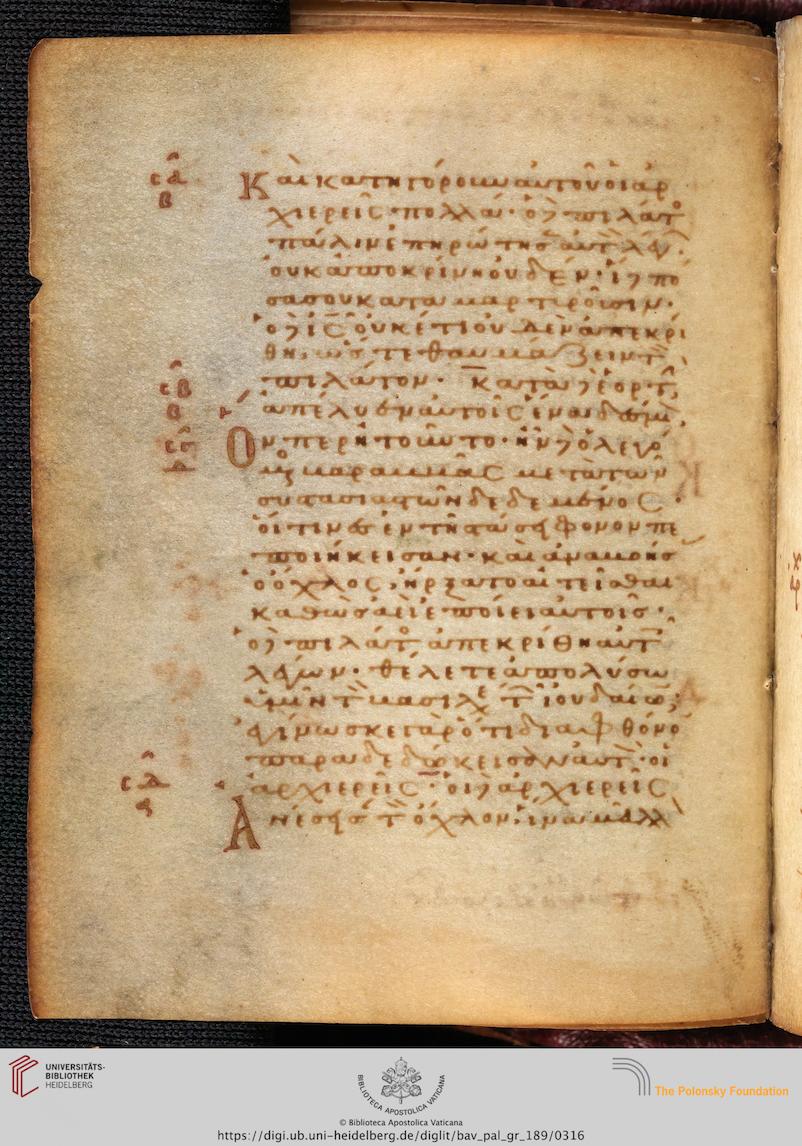 σα
β
Καὶ κατηγόρουν αὐτοῦ οἱ ἀρ
χιερεῖς· πολλά· ὁ δὲ πιλάτο
πάλιν ἐπηρώτησεν αὐτ λέγ·
οὐκ ἀποκρίνη οὐδέν· ἴδε πό
σα σου καταμαρτυροῦσιν·
ὁ δὲ ις οὐκέτι οὐδὲν ἀπεκρί
θη, ὥστε θαυμάζειν τ
σβ
β
πιλάτον· Κατὰ δὲ ἑορτ
ἀπέλυεν αὐτοῖς ἕνα δέσμι
σγ
Ὅνπερ ἠτοῦντο· ἦν δὲ ὁ λεγό
μο βαραββᾶς μετὰ τῶν
συστασιαστῶν δεδεμένος·
οἵτινες ἐν τῇ στάσει φόνον πε
ποιήκεισαν· καὶ ἀναβοήσας
ὁ ὄχλος, ἤρξατο αἰτεῖσθαι
καθὼς ἀεὶ ἐποίει αὐτοῖς·
ὁ δὲ πιλάτο ἀπεκρίθη αὐτ
λέγων· θέλετε ἀπολύσω
ὑμῖν τ βασιλέ τ ἰουδαίω;
ἐγίνωσκε γὰρ ὅτι διὰ φθόνο
παραδεδώκεισαν αὐτ· οἱ
ἀρχιερεῖς· οἱ δὲ ἀρχιερεῖς
σδ
Ἀνέσεισ τ ὄχλον, ἵνα μᾶλλ
UNIVERSITÄTS-
BIBLIOTHEK
HEIDELBERG
BIBLIOTECA APOSTOLICA VATICANA
The Polonsky Foundation
© Biblioteca Apostolica Vaticana
https://digi.ub.uni-heidelberg.de/diglit/bav_pal_gr_189/0316